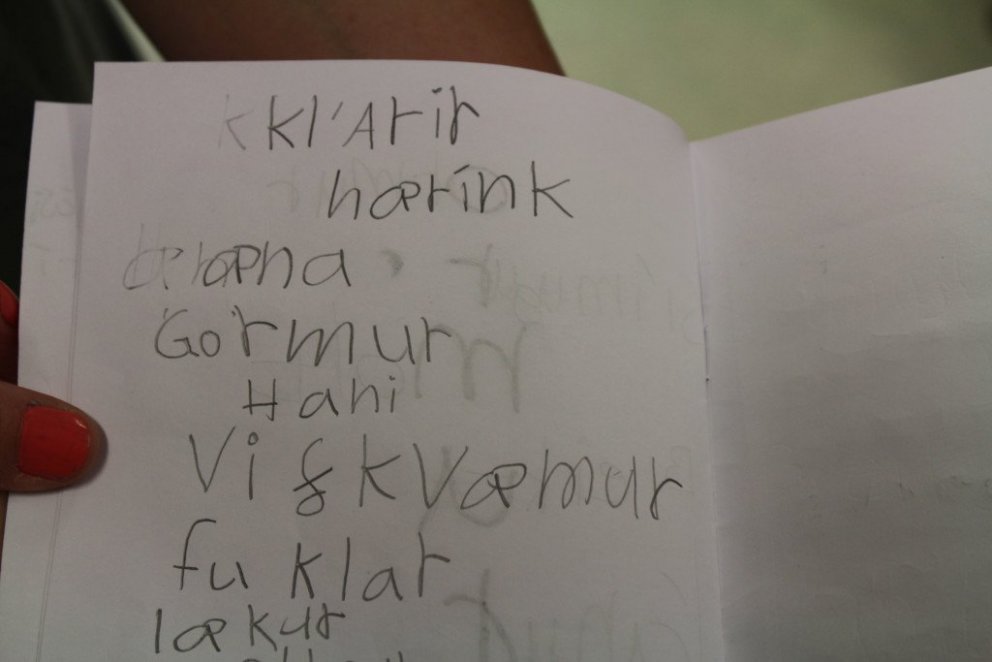 KKl'Arir
hærink
hæna
Gormur
Hani
Vi fkvæmur
fuklar
lækur